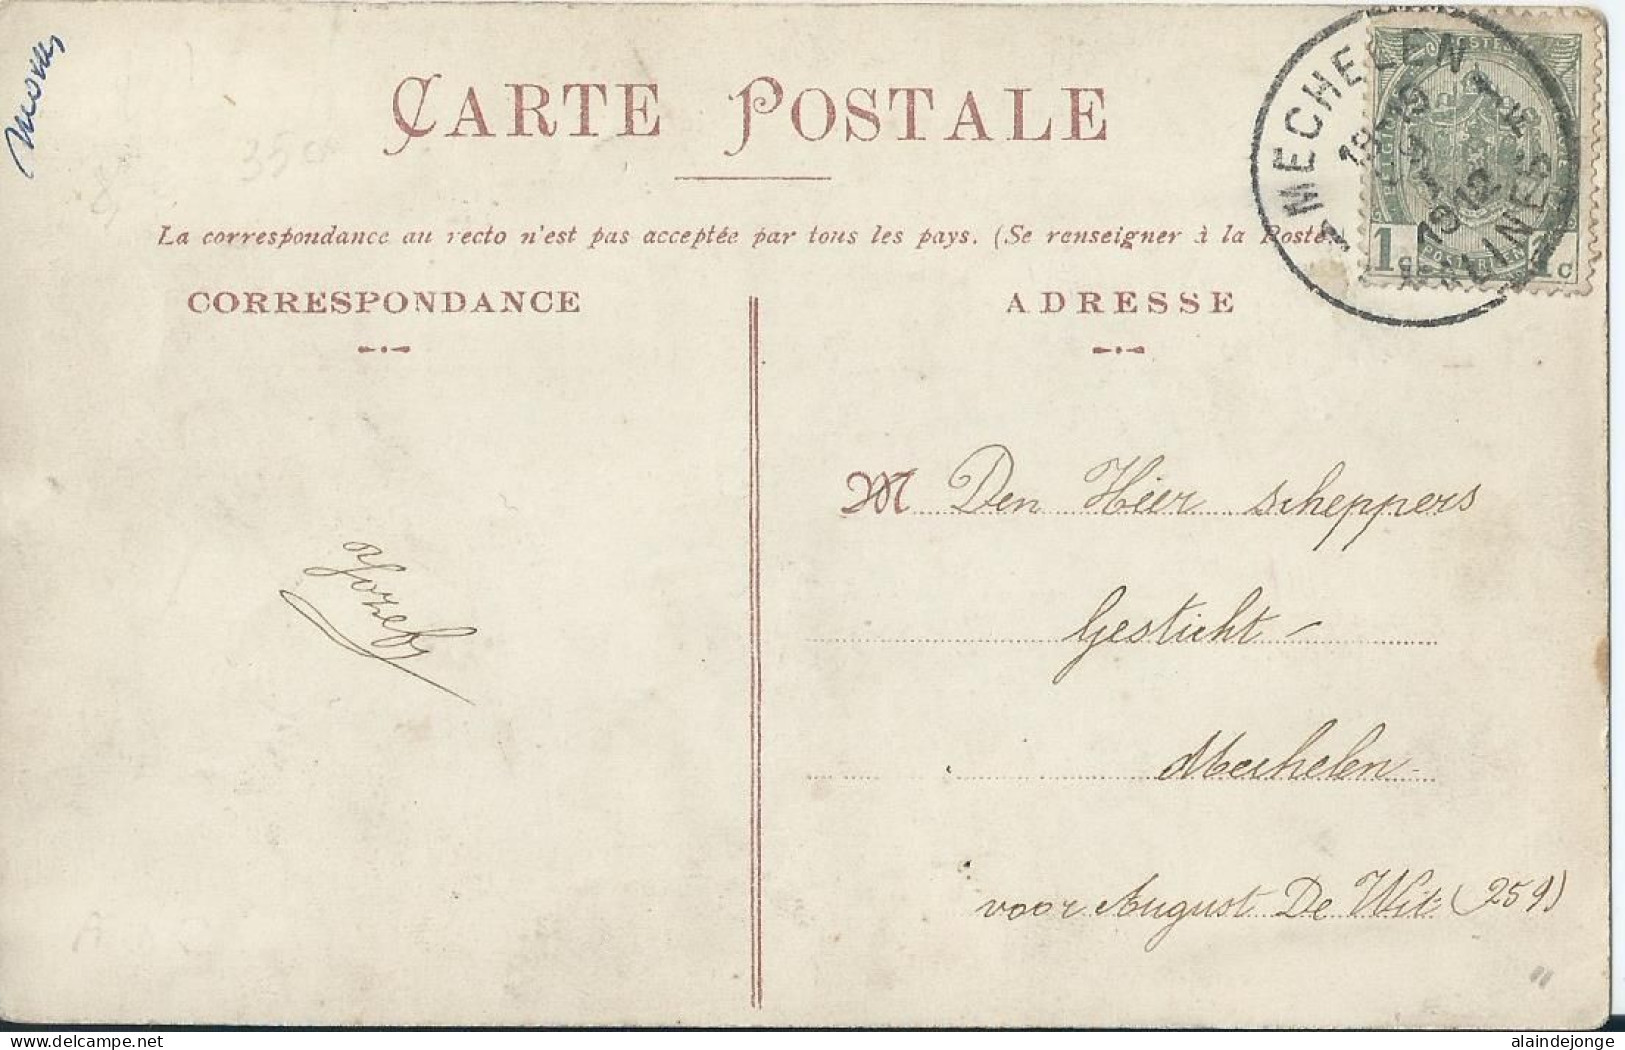 CARTE POSTALE
La correspondance au recto n'est pas acceptée par tous les pays. (Se renseigner à la Poste
CORRESPONDANCE
ADRESSE
MECHELEN
18-19
1912
MALINES
1c 1c
M Den Heer Scheppers
Gesticht -
Mechelen -
voor August De Wit (259)
Jozef
3500
delcampe.net
alaindejonge